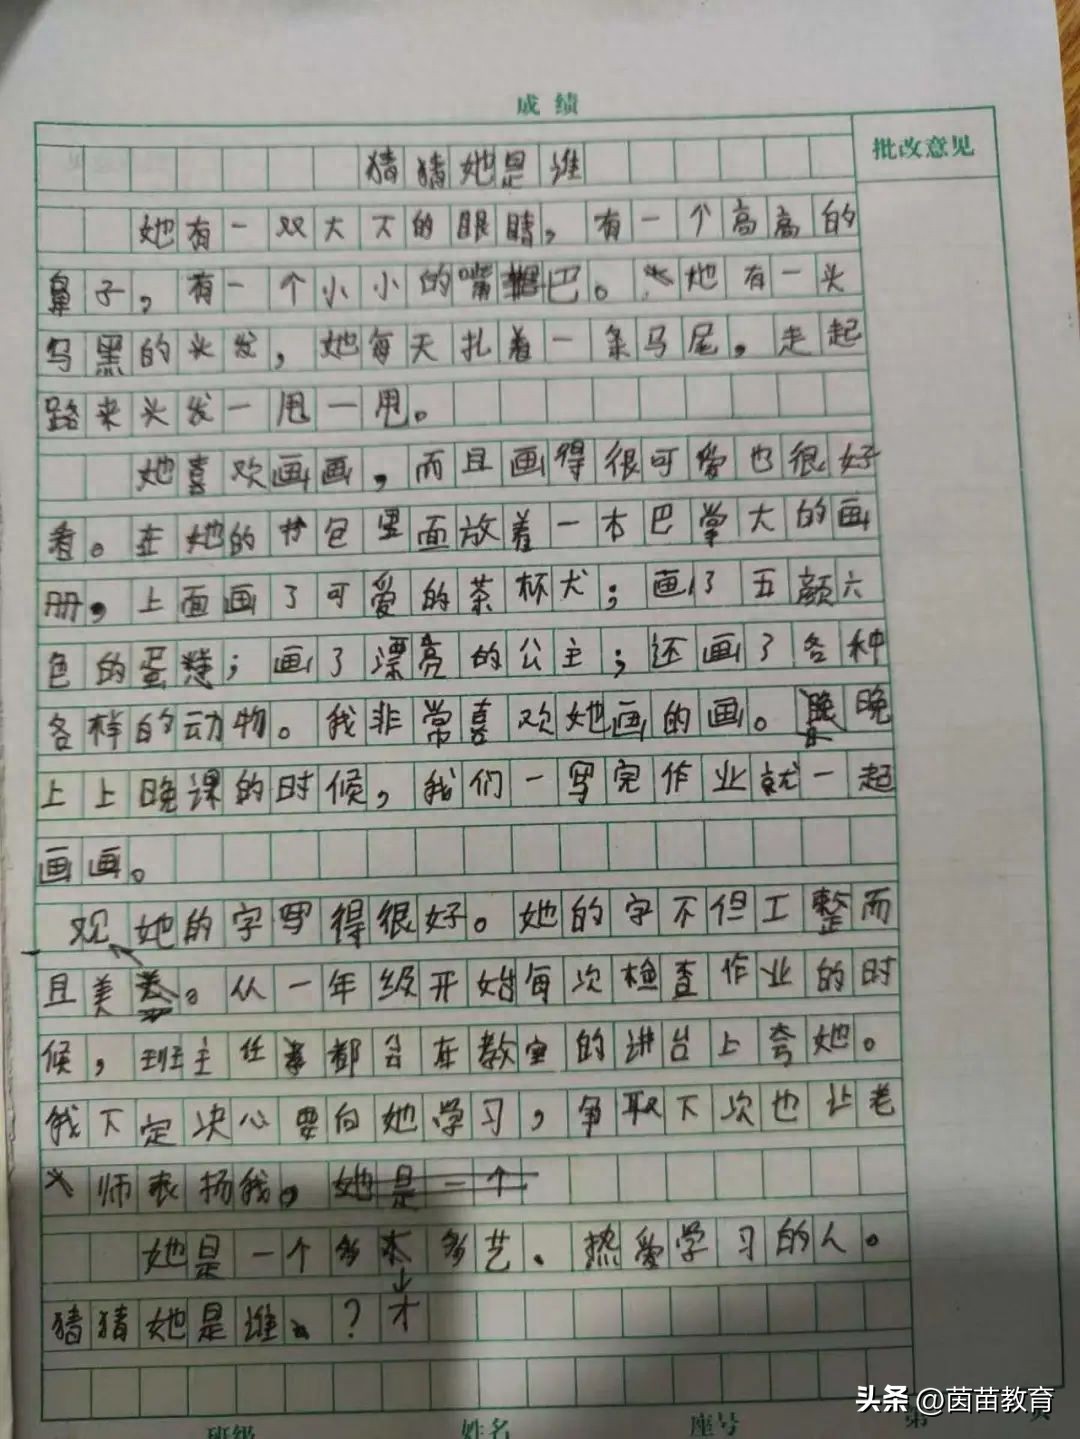 成绩
批改意见
猜猜她是谁
她有一双大大的眼睛，有一个高高的
鼻子，有一个小小的嘴巴。她有一头
乌黑的头发，她每天扎着一条马尾，走起
路来头发一甩一甩。
她喜欢画画，而且画得很可爱也很好
看。在她的书包里面放着一本巴掌大的画
册，上面画了可爱的茶杯犬；画了五颜六
色的蛋糕；画了漂亮的公主；还画了各种
各样的动物。我非常喜欢她画的画。晚
上上晚课的时候，我们一写完作业就一起
画画。
她的字写得很好。她的字不但工整而
且美观。从一年级开始每次检查作业的时
候，班主任都会在教室的讲台上夸她。
我下定决心要向她学习，争取下次也让老
师表扬我。她是一个
她是一个多才多艺、热爱学习的人。
猜猜她是谁？
班级 姓名 座号 第 页
头条 @茵苗教育